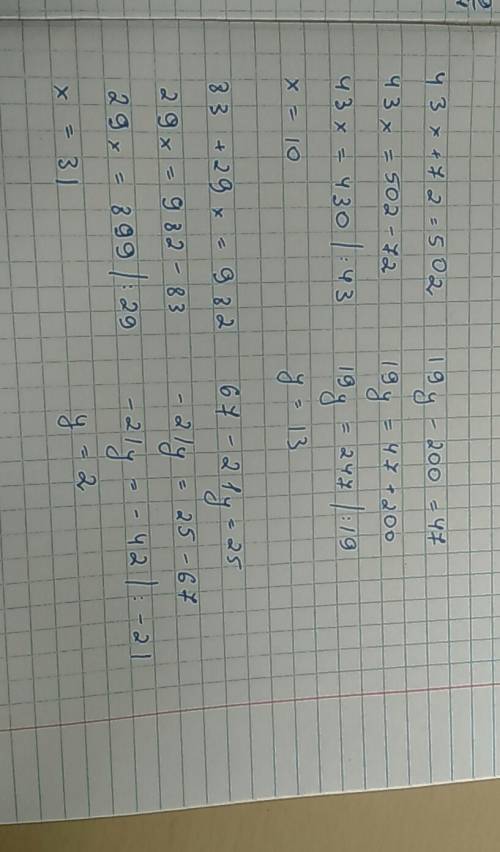 43x+72=502
43x=502-72
43x=430|:43
x=10
19y-200=47
19y=47+200
19y=247|:19
y=13
83+29x=982
29x=982-83
29x=899|:29
x=31
67-21y=25
-21y=25-67
-21y=-42|:-21
y=2